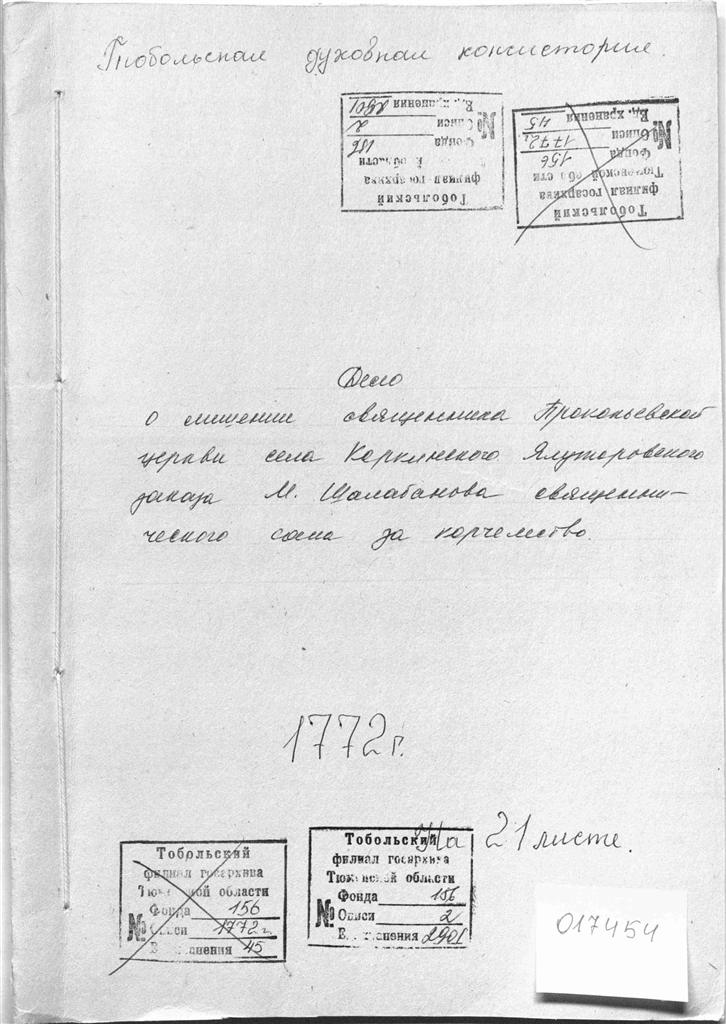 Тобольская духовная консистория.
Тобольский
филиал госархива
области
Фонда 156
№ Описи 2
Ед. хранения 2901
Тобольский
филиал госархива
Тюменской области
Фонда 156
№ Описи 1772г.
Ед. хранения 45
Дело
о лишении священника Прокопьевской
церкви села Коркинского Ялуторовского
заказа М. Шалабанова священни-
ческого сана за корчемство.
1772г.
На 21 листе.
Тобольский
филиал госархива
Тюменской области
Фонда 156
№ Описи 1772г.
Ед. хранения 45
Тобольский
филиал госархива
Тюменской области
Фонда 156
№ Описи 2
Ед. хранения 2901
017454